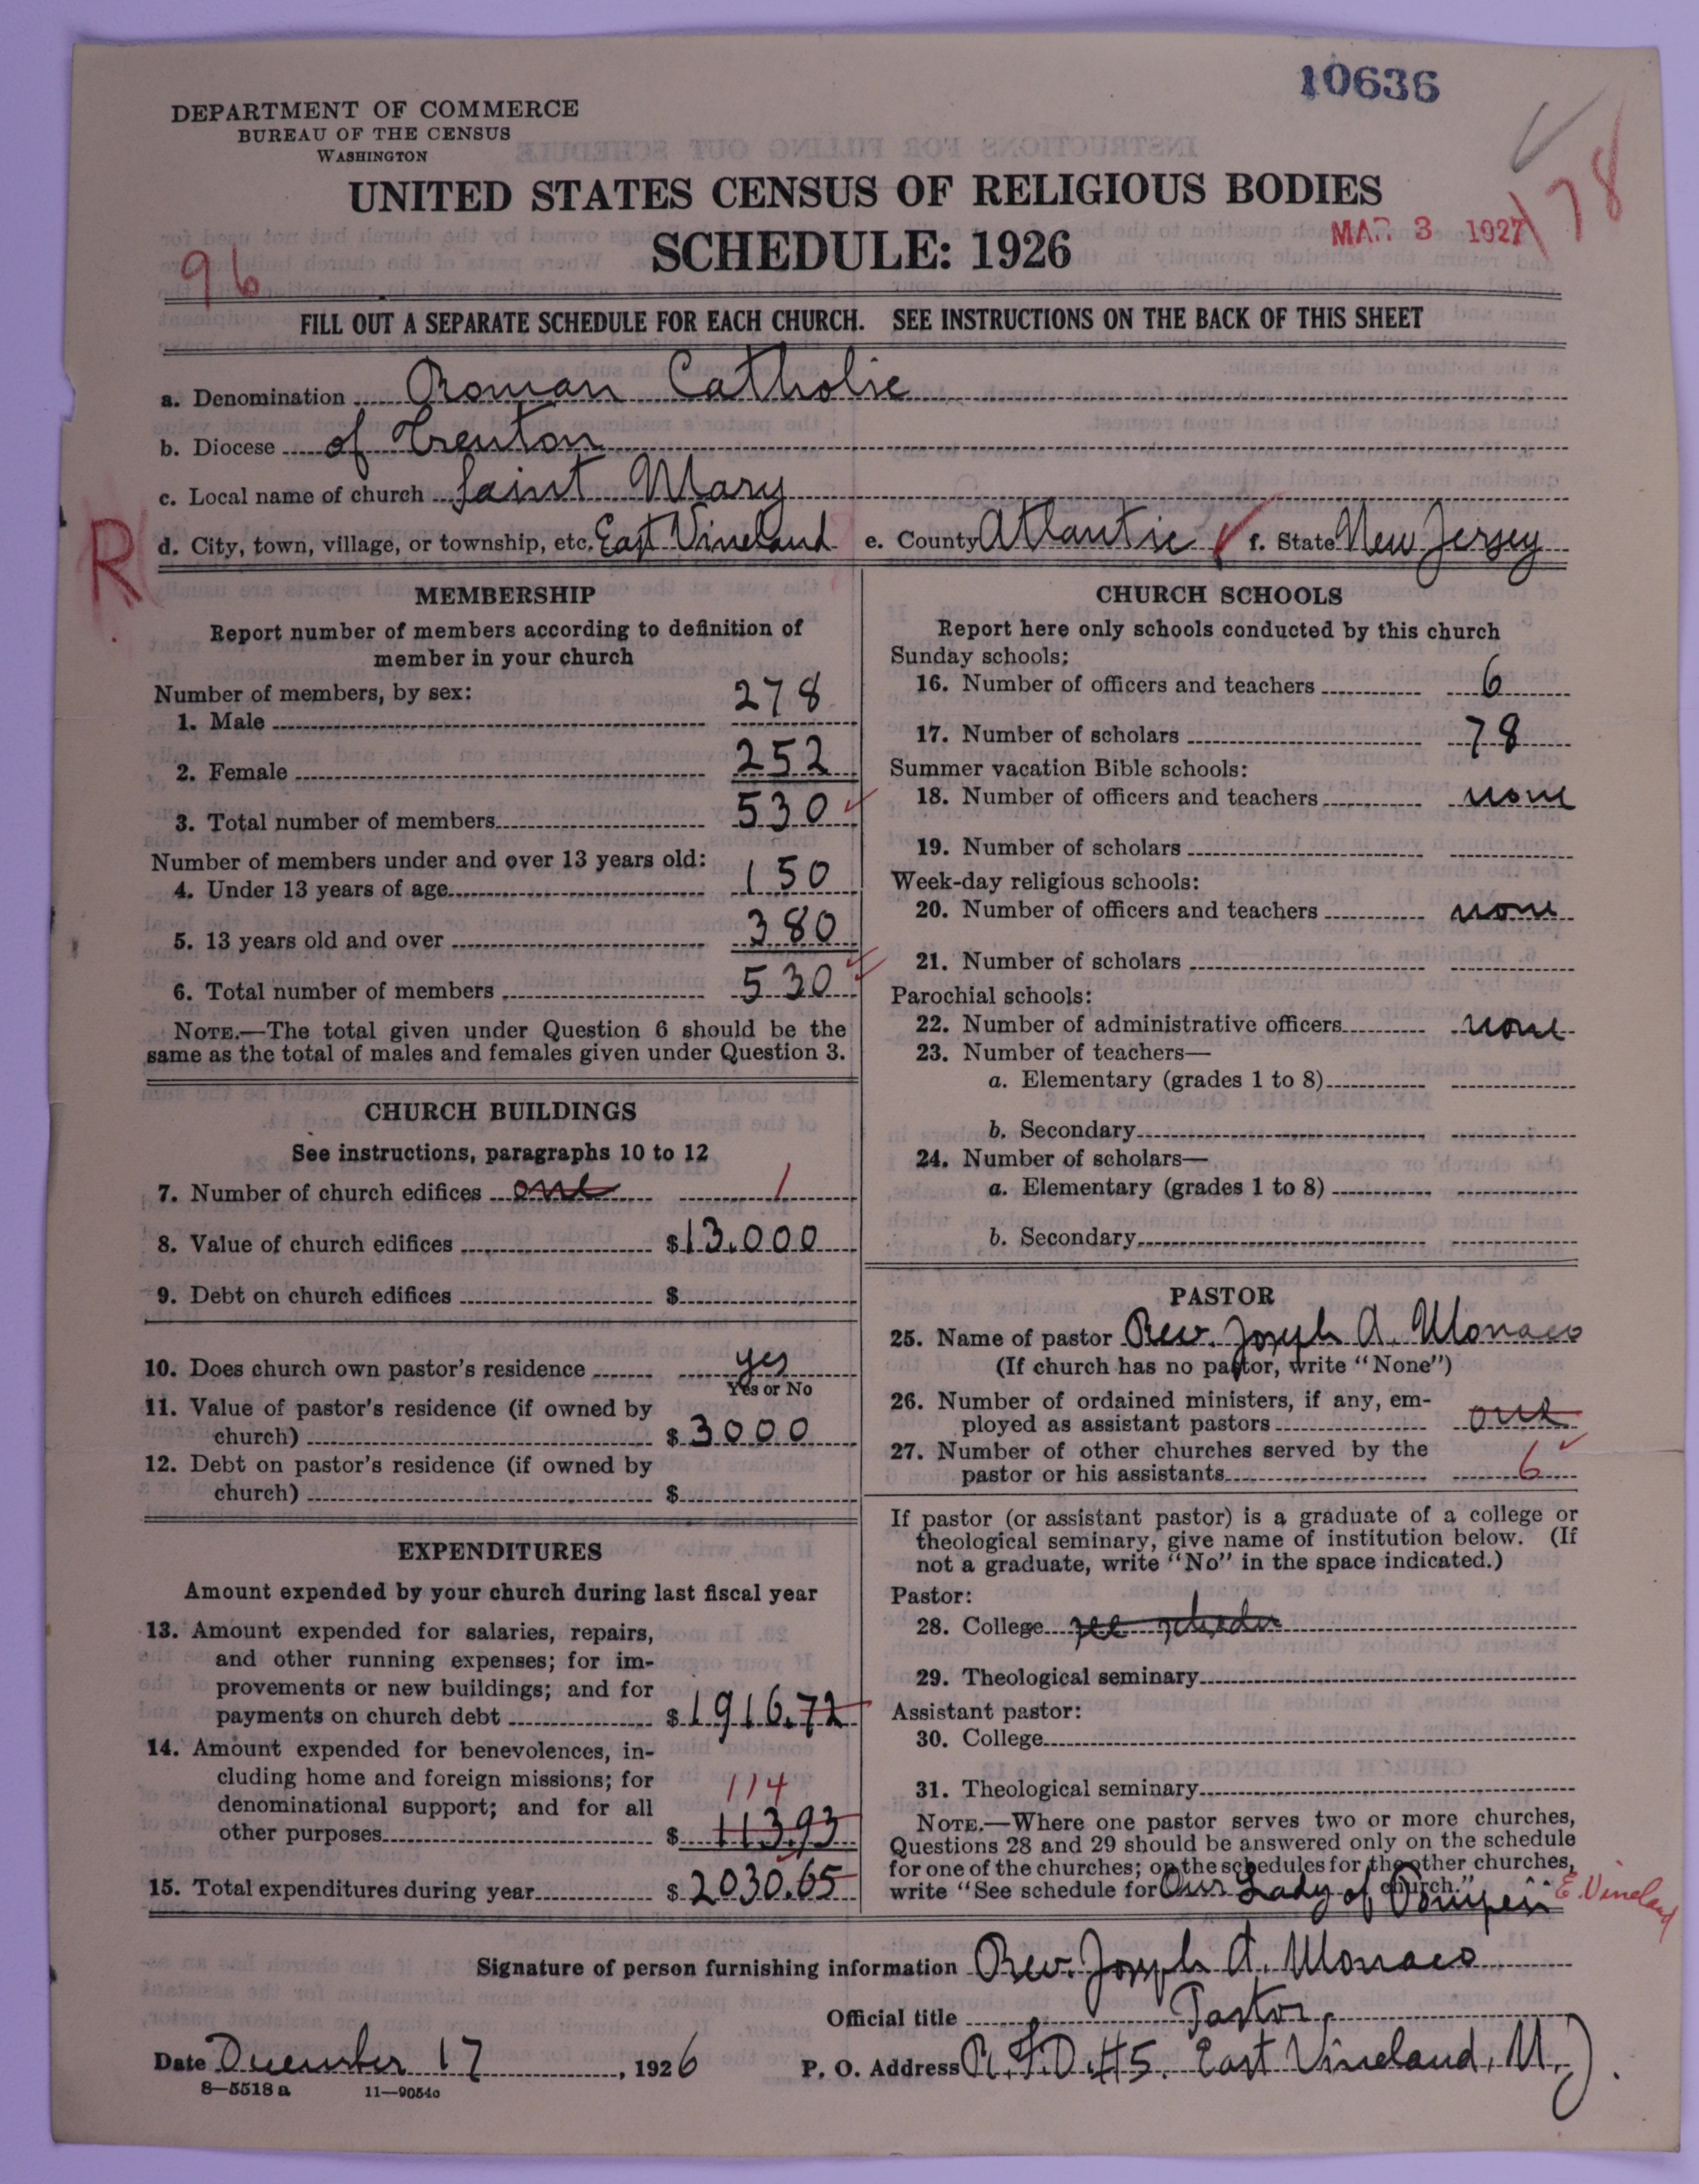 10636
DEPARTMENT OF COMMERCE
BUREAU OF THE CENSUS
WASHINGTON
UNITED STATES CENSUS OF RELIGIOUS BODIES
SCHEDULE: 1926
MAR 3 1927
178
96
FILL OUT A SEPARATE SCHEDULE FOR EACH CHURCH. SEE INSTRUCTIONS ON THE BACK OF THIS SHEET
a. Denomination Roman Catholic
b. Diocese of Trenton
c. Local name of church Saint Mary
R
d. City, town, village, or township, etc. East Vineland e. County Atlantic f. State New Jersey
MEMBERSHIP
Report number of members according to definition of
member in your church
Number of members, by sex:
1. Male 278
2. Female 252
3. Total number of members 530
Number of members under and over 13 years old:
4. Under 13 years of age 150
5. 13 years old and over 380
6. Total number of members 530
NOTE.—The total given under Question 6 should be the
same as the total of males and females given under Question 3.
CHURCH BUILDINGS
See instructions, paragraphs 10 to 12
7. Number of church edifices one 1
8. Value of church edifices $13.000
9. Debt on church edifices $
10. Does church own pastor's residence yes
Yes or No
11. Value of pastor's residence (if owned by
church) $3000
12. Debt on pastor's residence (if owned by
church) $
EXPENDITURES
Amount expended by your church during last fiscal year
13. Amount expended for salaries, repairs,
and other running expenses; for im-
provements or new buildings; and for
payments on church debt $1916.72
14. Amount expended for benevolences, in-
cluding home and foreign missions; for
denominational support; and for all
114
other purposes $ 113.93
15. Total expenditures during year $2030.65
CHURCH SCHOOLS
Report here only schools conducted by this church
Sunday schools:
16. Number of officers and teachers 6
17. Number of scholars 78
Summer vacation Bible schools:
18. Number of officers and teachers none
19. Number of scholars
Week-day religious schools:
20. Number of officers and teachers none
21. Number of scholars
Parochial schools:
22. Number of administrative officers none
23. Number of teachers—
a. Elementary (grades 1 to 8)
b. Secondary
24. Number of scholars—
a. Elementary (grades 1 to 8)
b. Secondary
PASTOR
25. Name of pastor Rev. Joseph A. Monaco
(If church has no pastor, write "None")
26. Number of ordained ministers, if any, em-
ployed as assistant pastors one
27. Number of other churches served by the
pastor or his assistants 6
If pastor (or assistant pastor) is a graduate of a college or
theological seminary, give name of institution below. (If
not a graduate, write "No" in the space indicated.)
Pastor:
28. College see
29. Theological seminary
Assistant pastor:
30. College
31. Theological seminary
NOTE.—Where one pastor serves two or more churches,
Questions 28 and 29 should be answered only on the schedule
for one of the churches; on the schedules for the other churches,
write "See schedule for Our Lady of Pompeii church." E. Vineland
Signature of person furnishing information Rev. Joseph A. Monaco
Official title Pastor
Date December 17, 1926 P. O. Address R.F.D. #5. East Vineland, N.J.
8—5518 a 11—9054a